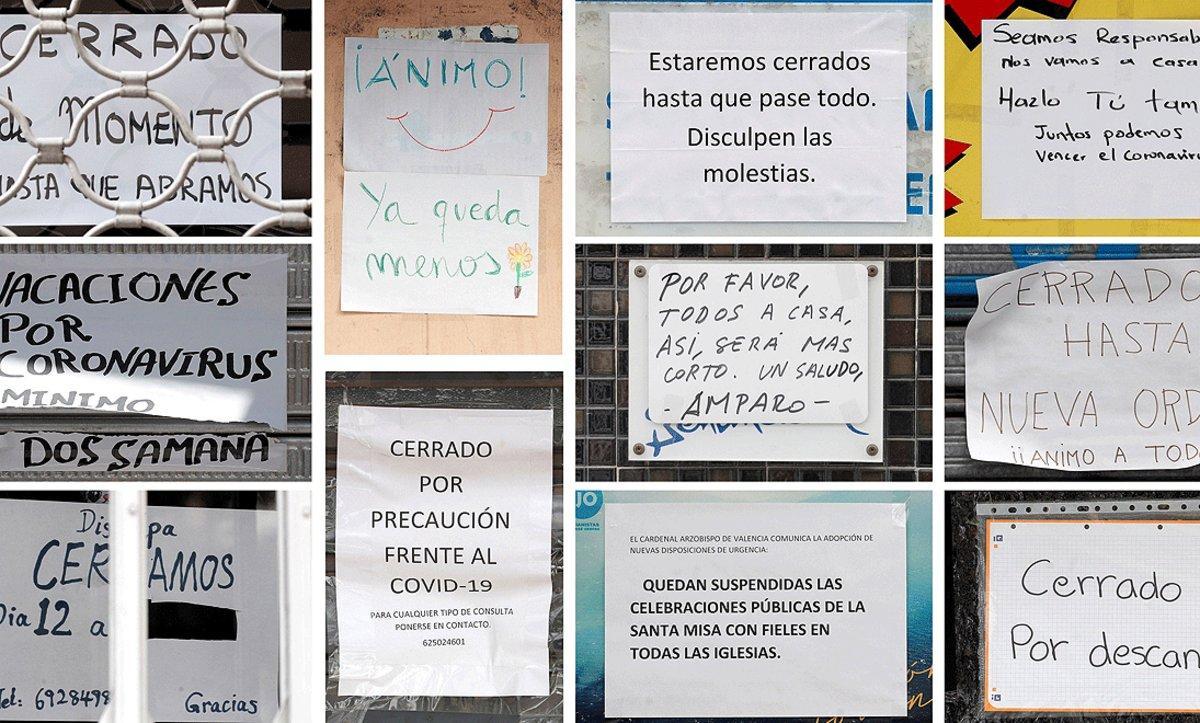 CERRADO
de MOMENTO
HASTA QUE ABRAMOS
VACACIONES
POR
CORONAVIRUS
MINIMO
DOS SAMANA
CERRAMOS
Dia 12 a
Tel: 6928498
Gracias
¡ÁNIMO!
Ya queda
menos
CERRADO
POR
PRECAUCIÓN
FRENTE AL
COVID-19
PARA CUALQUIER TIPO DE CONSULTA
PONERSE EN CONTACTO.
625024601
Estaremos cerrados
hasta que pase todo.
Disculpen las
molestias.
POR FAVOR,
TODOS A CASA,
ASÍ, SERÁ MAS
CORTO. UN SALUDO,
- AMPARO -
EL CARDENAL ARZOBISPO DE VALENCIA COMUNICA LA ADOPCIÓN DE
NUEVAS DISPOSICIONES DE URGENCIA:
QUEDAN SUSPENDIDAS LAS
CELEBRACIONES PÚBLICAS DE LA
SANTA MISA CON FIELES EN
TODAS LAS IGLESIAS.
Seamos Responsab
Nos vamos a casa
Hazlo Tú tam
Juntos podemos
Vencer el coronaviru
CERRADO
HASTA
NUEVA ORD
¡¡ANIMO A TOD
Cerrado
Por descan